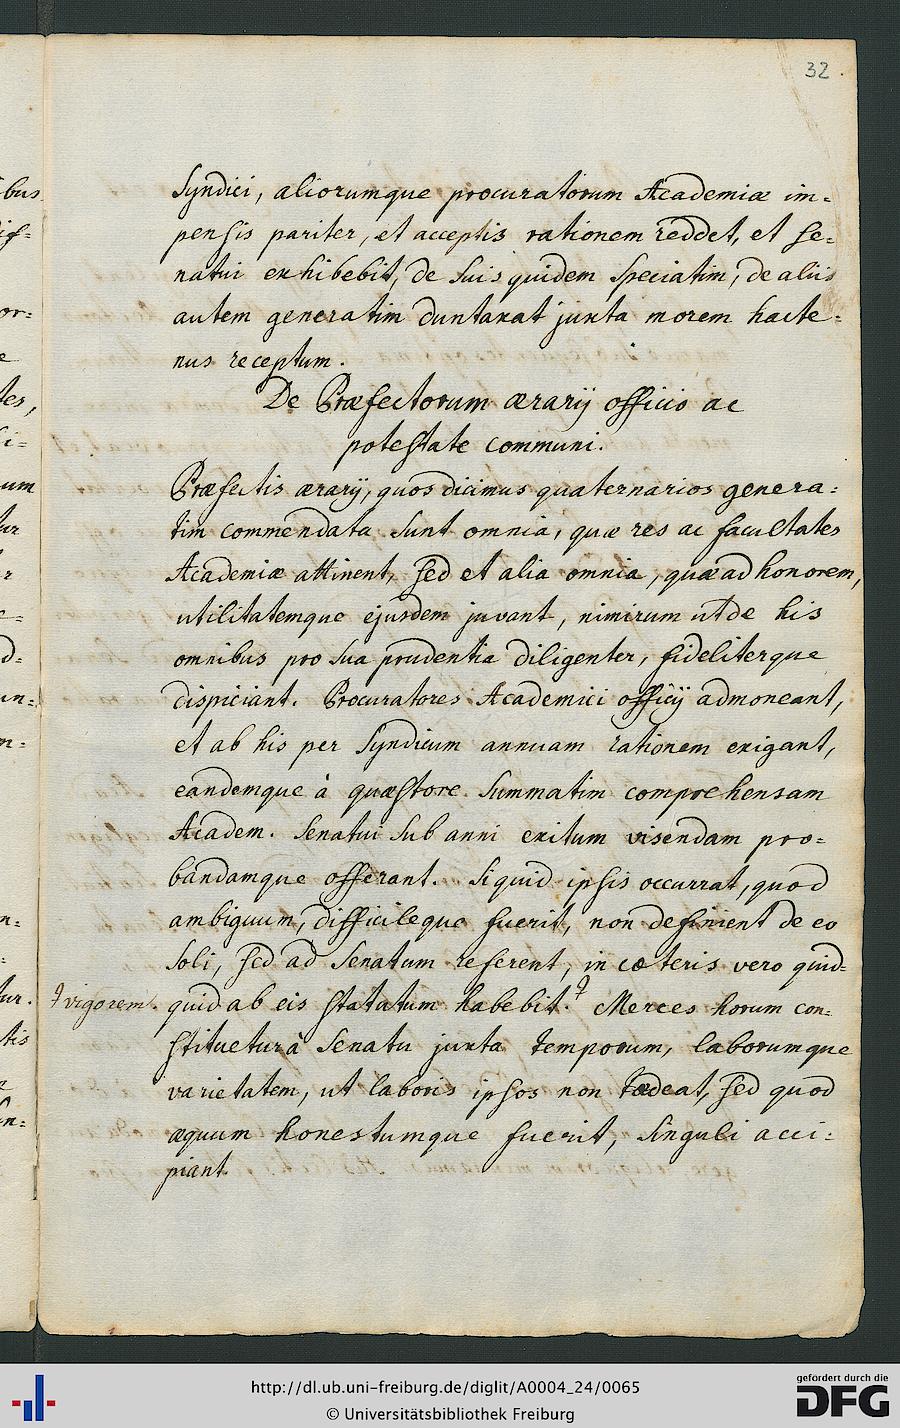 32
Syndici, aliorumque procuratorum Academiæ im-
pensis pariter, et acceptis rationem reddet, et se-
natui exhibebit, de suis quidem speciatim, de aliis
autem generatim duntaxat juxta morem hacte-
nus receptum.
De Præfectorum ærarij officio ac
potestate communi.
Præfectis ærarij, quos dicimus quaternarios genera-
tim commendata sunt omnia, quæ res ac facultates
Academiæ attinent, sed et alia omnia, quæ ad honorem,
utilitatemque ejusdem juvant, nimirum ut de his
omnibus pro sua prudentia diligenter, fideliterque
dispiciant. Procuratores Academici officij admoneant,
et ab his per Syndicum annuam rationem exigant,
eandemque à quæstore summatim comprehensam
Academ. Senatui sub anni exitum visendam pro-
bandamque offerant. Siquid ipsis occurrat, quod
ambiguum, difficileque fuerit, non definient de eo
soli, sed ad Senatum referent, in cæteris vero quid-
vigorem. quid ab eis statatum habebit. Merces horum con-
stituetur à Senatu juxta temporum, laborumque
varietatem, ut laboris ipsos non tædeat, sed quod
æquum honestumque fuerit, singuli acci-
piant
http://dl.ub.uni-freiburg.de/diglit/A0004_24/0065
© Universitätsbibliothek Freiburg
gefördert durch die
DFG